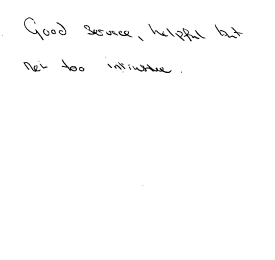 Good service, helpful but
not too intrusive.